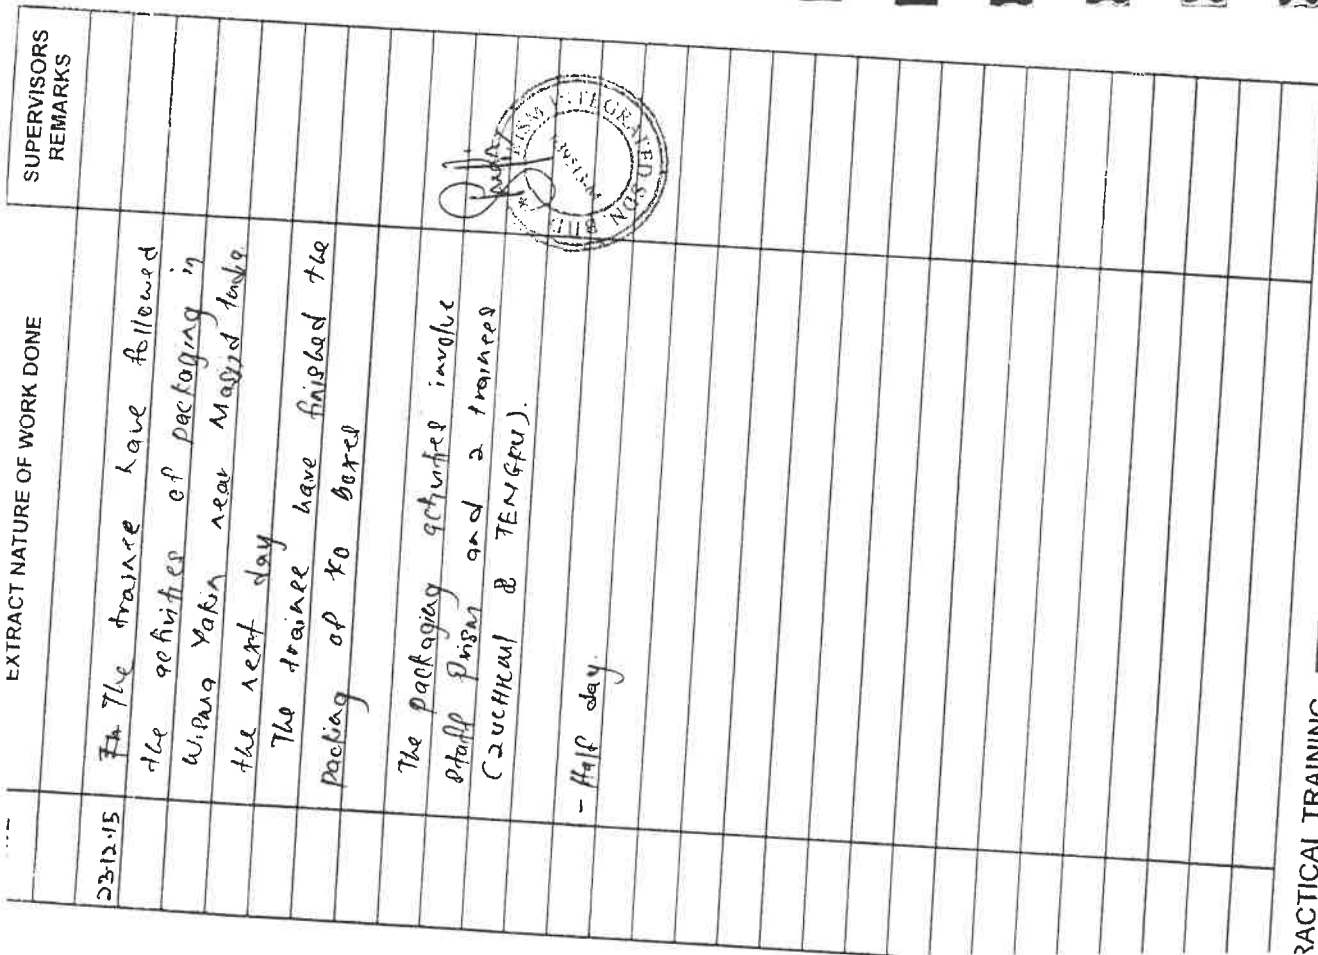 EXTRACT NATURE OF WORK DONE
SUPERVISORS
REMARKS
23.12.15
The trainee have followed
the activities of packaging in
Wisma Yakin near Masjid India
the next day
The trainee have finished the
packing of boxes
The packaging activities involve
staff prism and 2 trainees
(ZUCHRI & TENGKU).
- Half day.
PRISM INTEGRATED SDN. BHD.
RACTICAL TRAINING